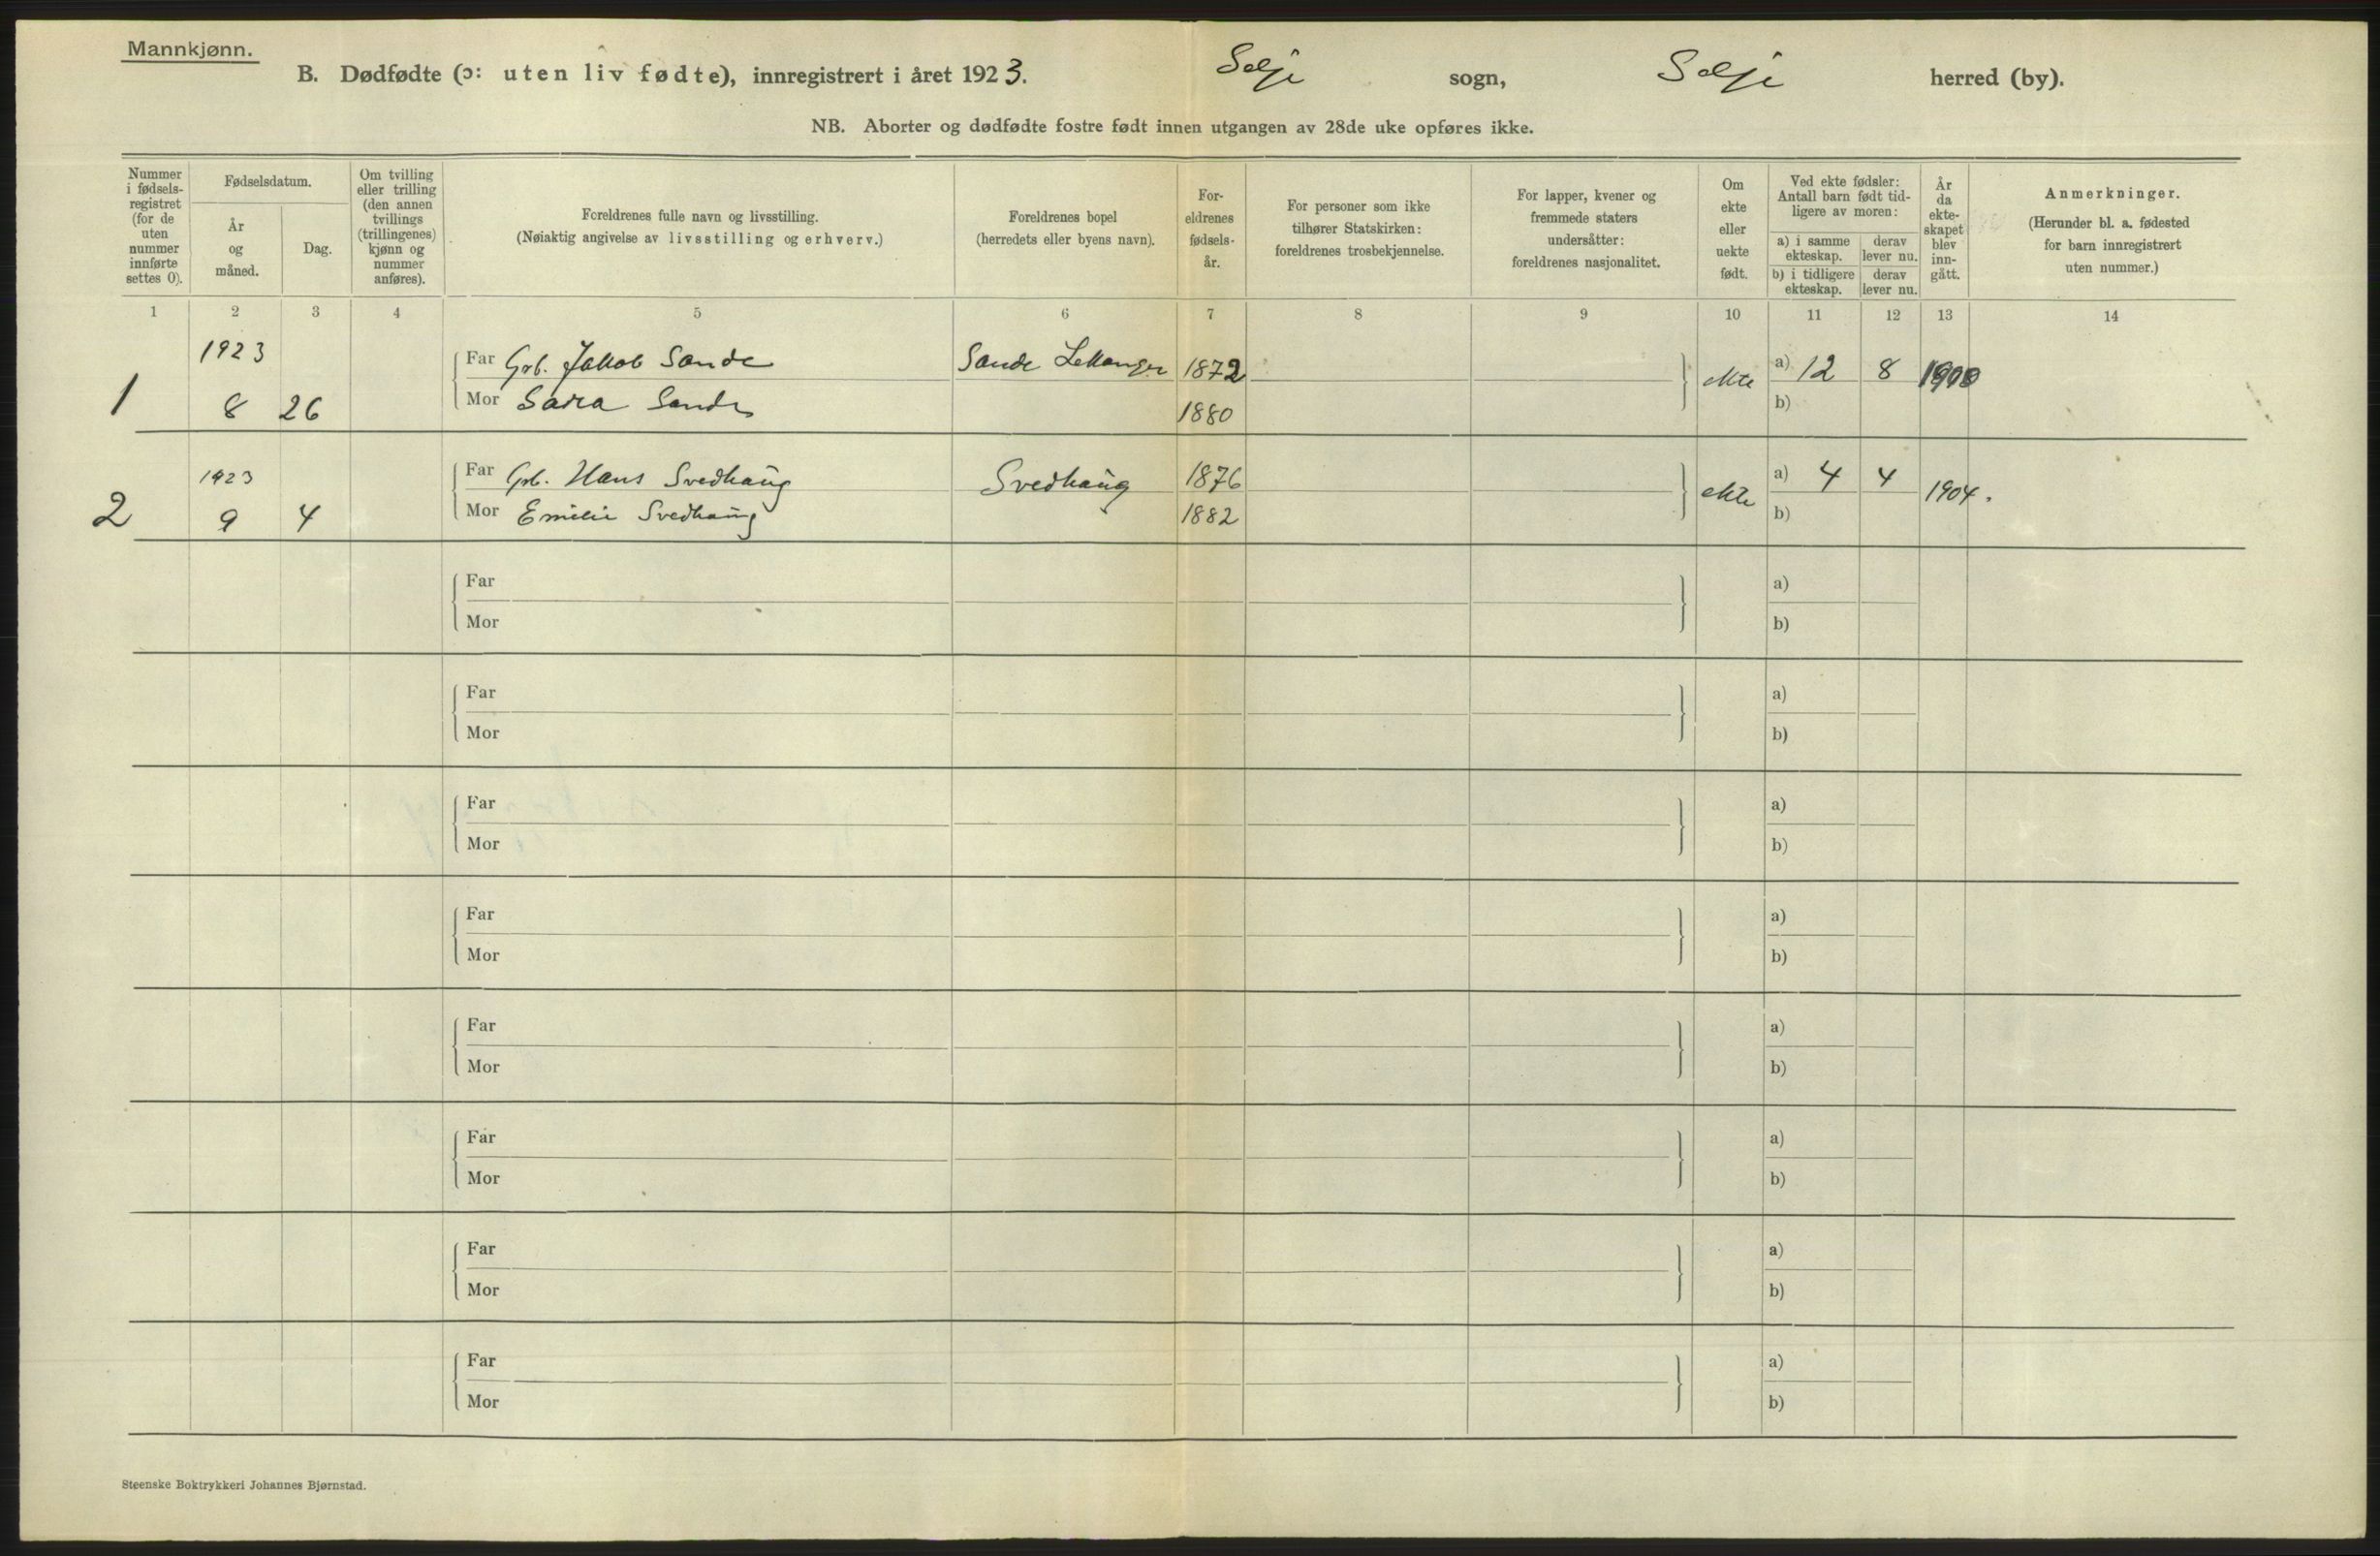 Mannkjønn.
B. Dødfødte (ɔ: uten liv fødte), innregistrert i året 1923. Selje sogn, Selje herred (by).
NB. Aborter og dødfødte fostre født innen utgangen av 28de uke opføres ikke.
Nummer i fødsels- registret (for de uten nummer innførte settes 0).
Fødselsdatum.
År og måned.
Dag.
Om tvilling eller trilling (den annen tvillings (trillingenes) kjønn og nummer anføres).
Foreldrenes fulle navn og livsstilling.
(Nøiaktig angivelse av livsstilling og erhverv.)
Foreldrenes bopel
(herredets eller byens navn).
For- eldrenes fødsels- år.
For personer som ikke tilhører Statskirken: foreldrenes trosbekjennelse.
For lapper, kvener og fremmede staters undersåtter: foreldrenes nasjonalitet.
Om ekte eller uekte født.
Ved ekte fødsler: Antall barn født tid- ligere av moren:
a) i samme ekteskap.
derav lever nu.
b) i tidligere ekteskap.
derav lever nu.
År da ekte- skapet blev inn- gått.
Anmerkninger.
(Herunder bl. a. fødested for barn innregistrert uten nummer.)
1 2 3 4 5 6 7 8 9 10 11 12 13 14
1923 Far Grb. Jakob Sande Sande 1872 ekte a) 12 8 1900
1 8 26 Mor Sara Sande 1880 b)
1923 Far Grb. Hans Svedhaug Svedhaug 1876 ekte a) 4 4 1904.
2 9 4 Mor Emilie Svedhaug 1882 b)
Far a)
Mor b)
Far a)
Mor b)
Far a)
Mor b)
Far a)
Mor b)
Far a)
Mor b)
Far a)
Mor b)
Far a)
Mor b)
Far a)
Mor b)
Steenske Boktrykkeri Johannes Bjørnstad.